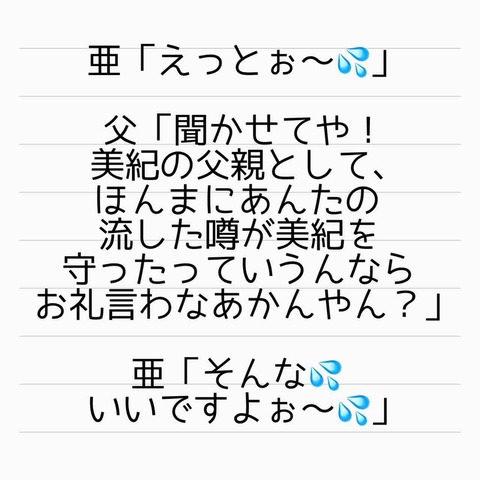 亜「えっとぉ〜💦」
父「聞かせてや！
美紀の父親として、
ほんまにあんたの
流した噂が美紀を
守ったっていうんなら
お礼言わなあかんやん？」
亜「そんな💦
いいですよぉ〜💦」